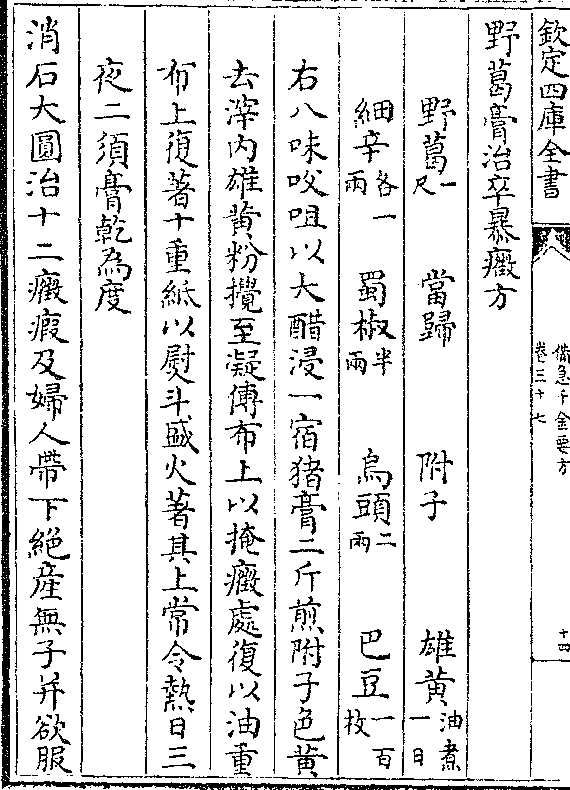 欽定四庫全書
備急千金要方
卷三十七
十四
野葛膏治卒暴癥方
野葛一尺 當歸 附子 雄黄油煮一日
細辛各一兩 蜀椒半兩 烏頭二兩 巴豆一百枚
右八味㕮咀以大醋浸一宿猪膏二斤煎附子色黄
去滓内雄黄粉攪至凝傅布上以掩癥處復以油重
布上復著十重紙以熨斗盛火著其上常令熱日三
夜二須膏乾為度
消石大圓治十二癥瘕及婦人帶下絶産無子并欲服